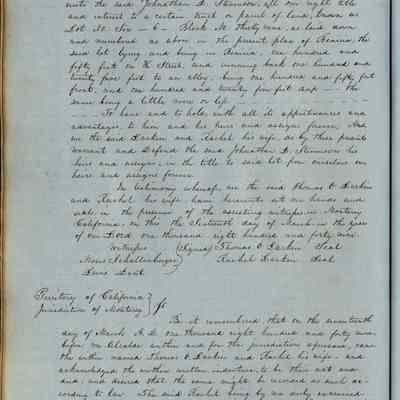 unto the said Johnathan D. Stevenson, all our right title
and interest to a certain tract or parcel of land, known as
Lot No. Six — 6 — Block No. Thirty nine, as laid down
and numbered as above in the present plan of Benicia, the
said lot lying and being in Benicia, one hundred and
fifty feet on K Street, and running back one hundred and
twenty five feet to an alley, being one hundred and fifty feet
front, and one hundred and twenty five feet deep — the
same being a little more or less
To have and to hold, with all it appurtenances and
advantages, to him and his heirs and assigns forever. And
we the said Larkin and Rachel his wife, do by these presents
warrant and Defend the said Johnathan D. Stevenson his
heirs and assigns, in the title to said lot from ourselves our
heirs and assigns forever
In testimony whereof we the said Thomas O. Larkin
and Rachel his wife, have hereunto set our hands and
seals in the presence of the assisting witnesses, in Monterey
California, on this the Sixteenth day of March in the year
of our Lord one thousand eight hundred and forty nine
Witness (Signed) Thomas O Larkin Seal
Moses Schallenberger Rachel Larkin Seal
Lewis Dent
Territory of California
Jurisdiction of Monterey } ss
Be it remembered that on the seventeenth
day of March A.D. one thousand eight hundred and forty nine,
before me Alcalde within and for the jurisdiction aforesaid, came
the within named Thomas O. Larkin and Rachel his wife - and
acknowledged the within written indenture to be their act and
deed, and desired that the same might be recorded as such ac-
cording to law. The said Rachel being by me duly examined